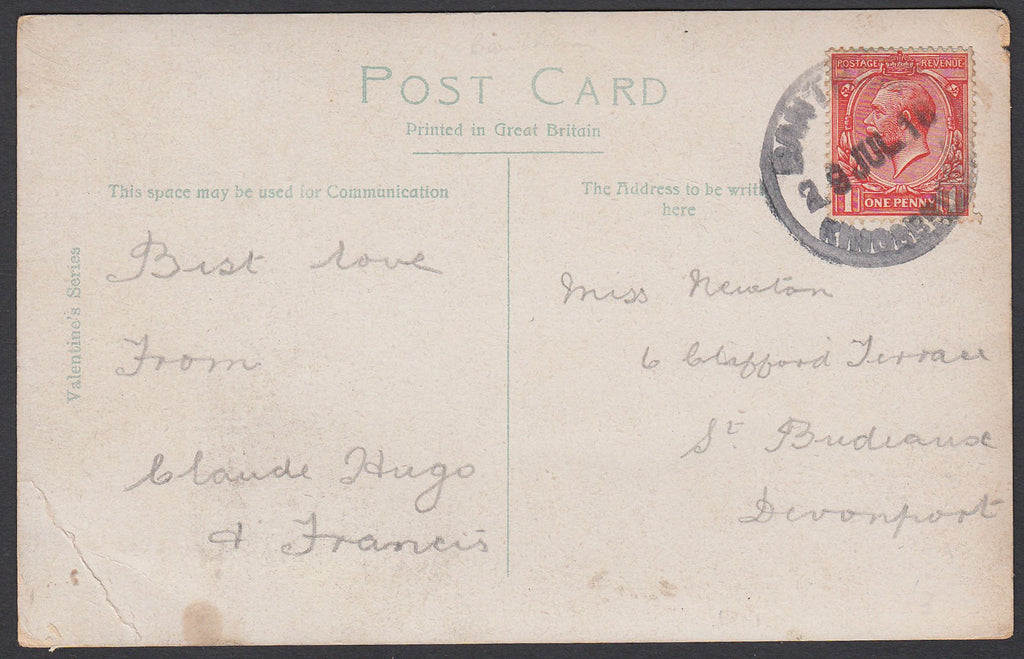 POST CARD
Printed in Great Britain
POSTAGE REVENUE
1 ONE PENNY 1
28 JUL
This space may be used for Communication
The Address to be
here
Valentine's Series
Best love
From
Claude Hugo
& Francis
Miss Newton
6 Clifford Terrace
St Budeaux
Devonport